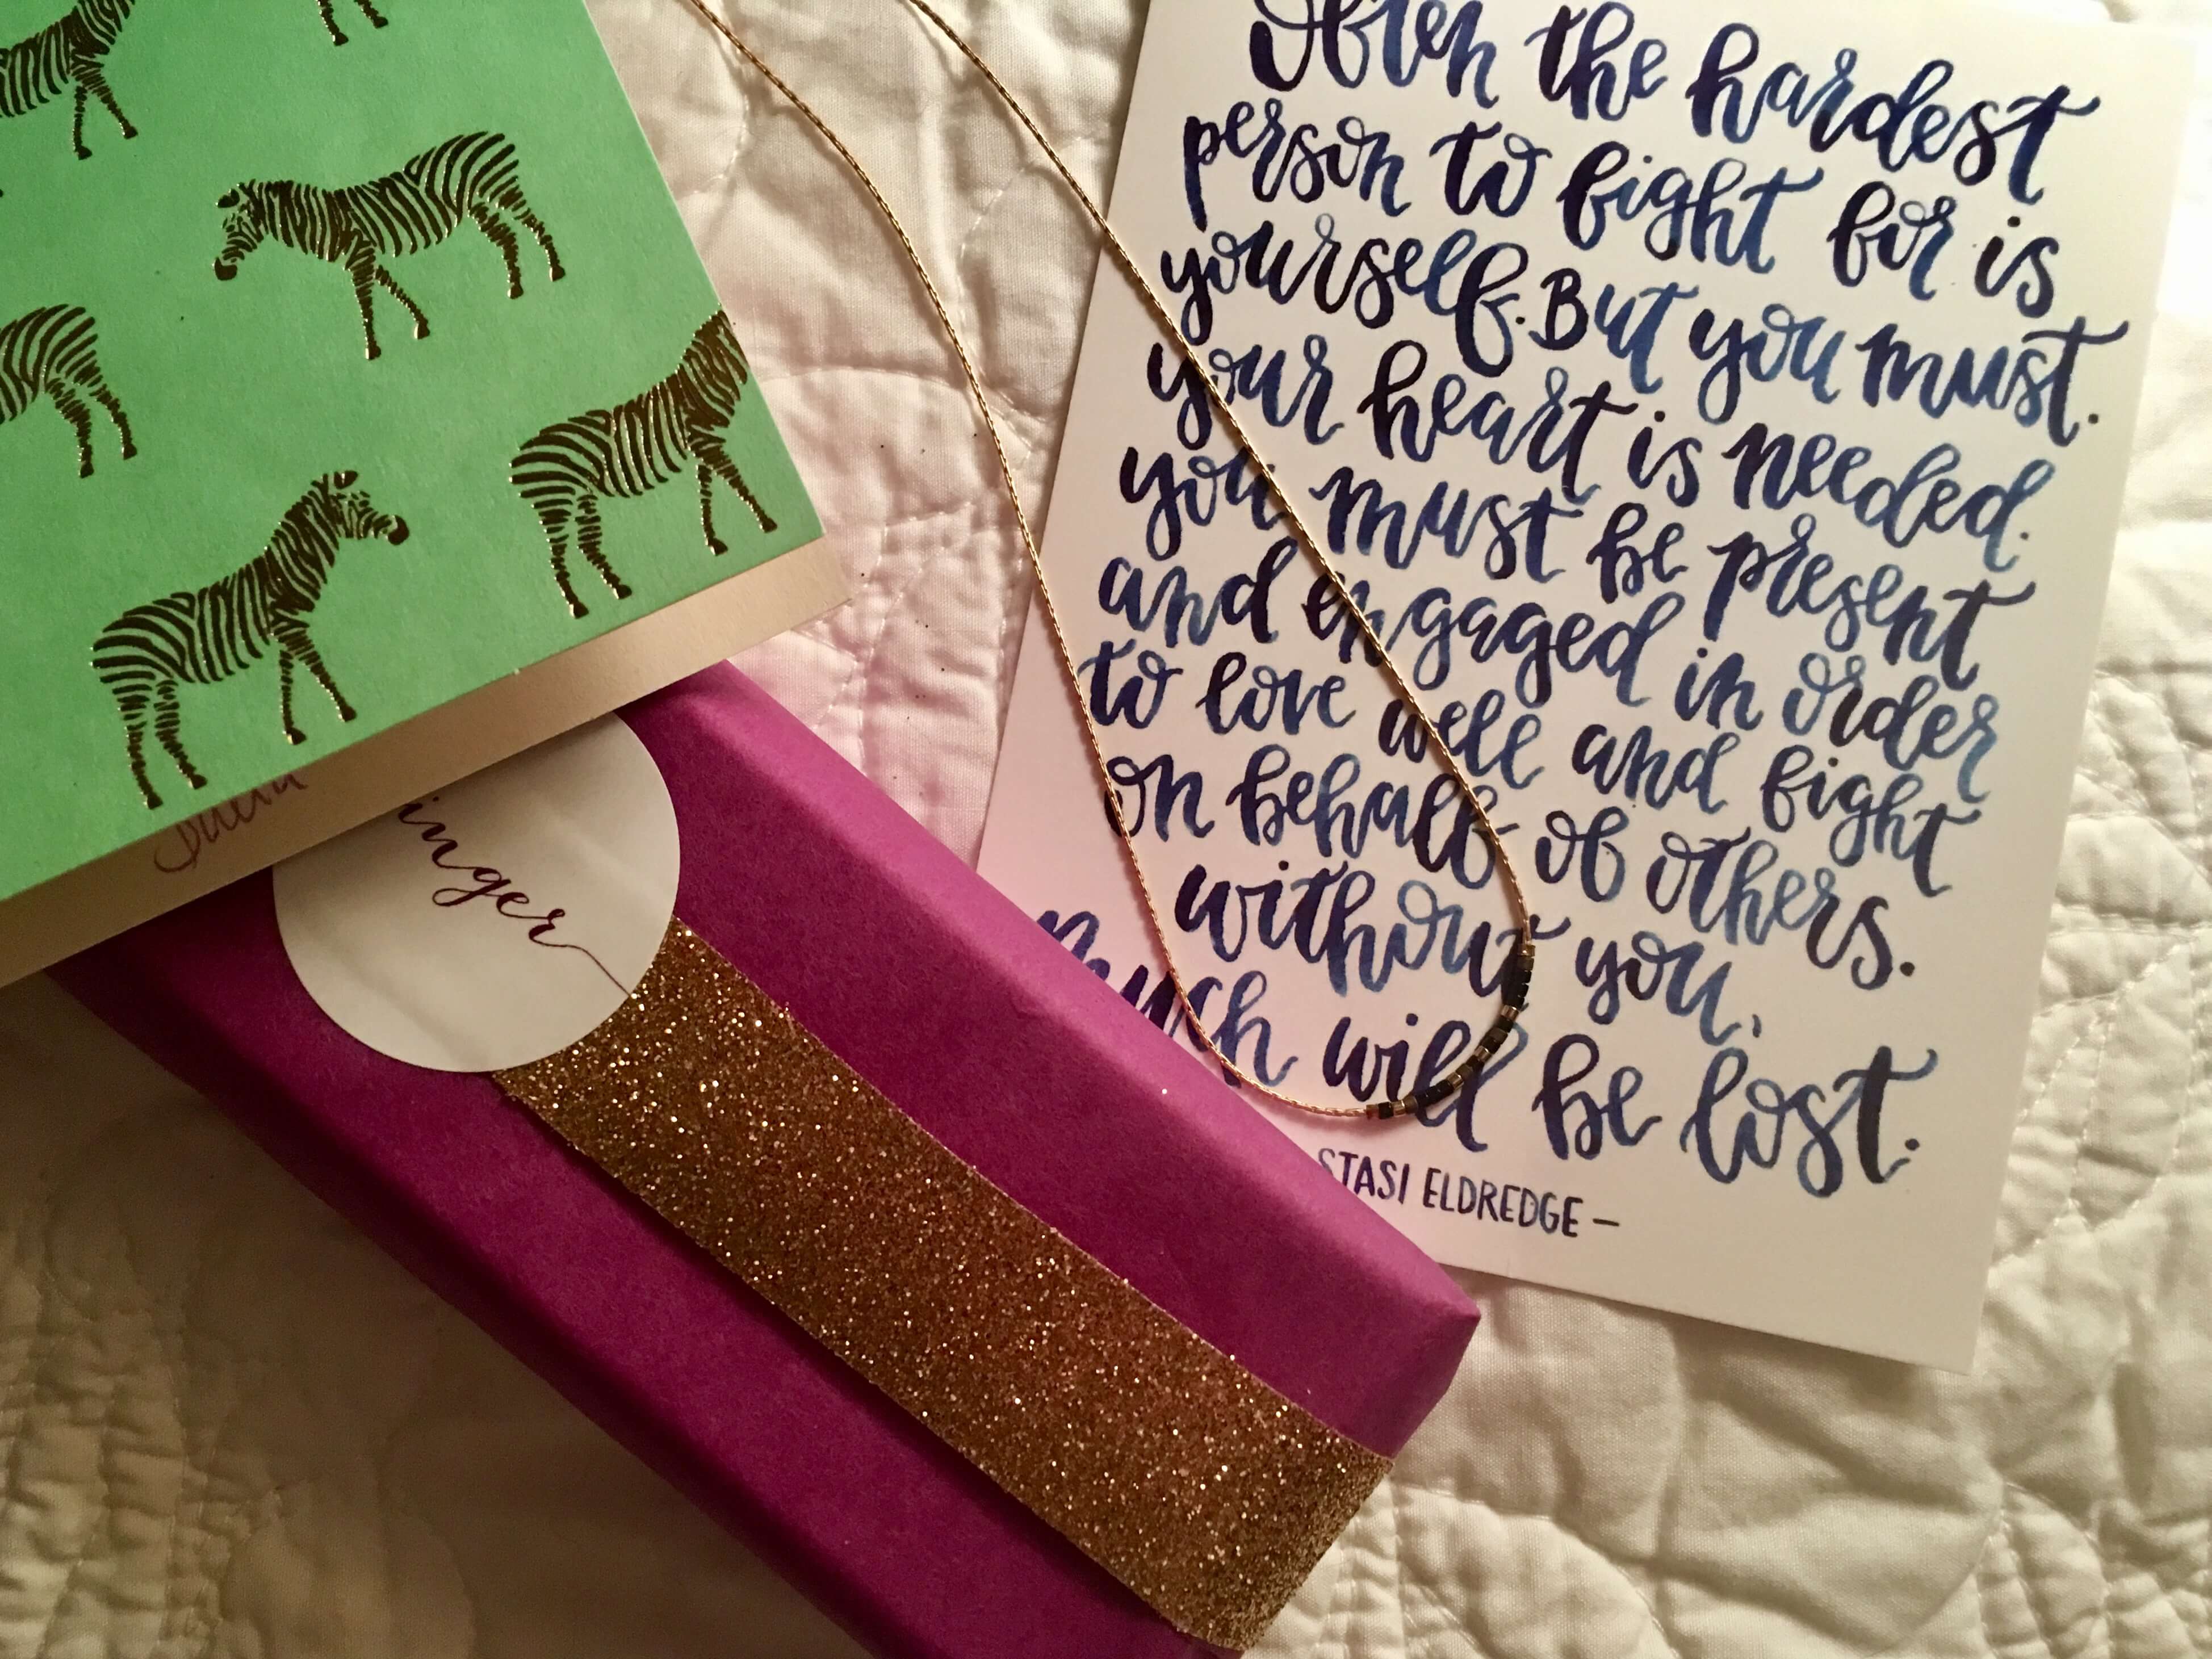 Often the hardest
person to fight for is
yourself. But you must.
your heart is needed.
you must be present
and engaged in order
to love well and fight
on behalf of others.
without you,
much will be lost.
STASI ELDREDGE —
inger